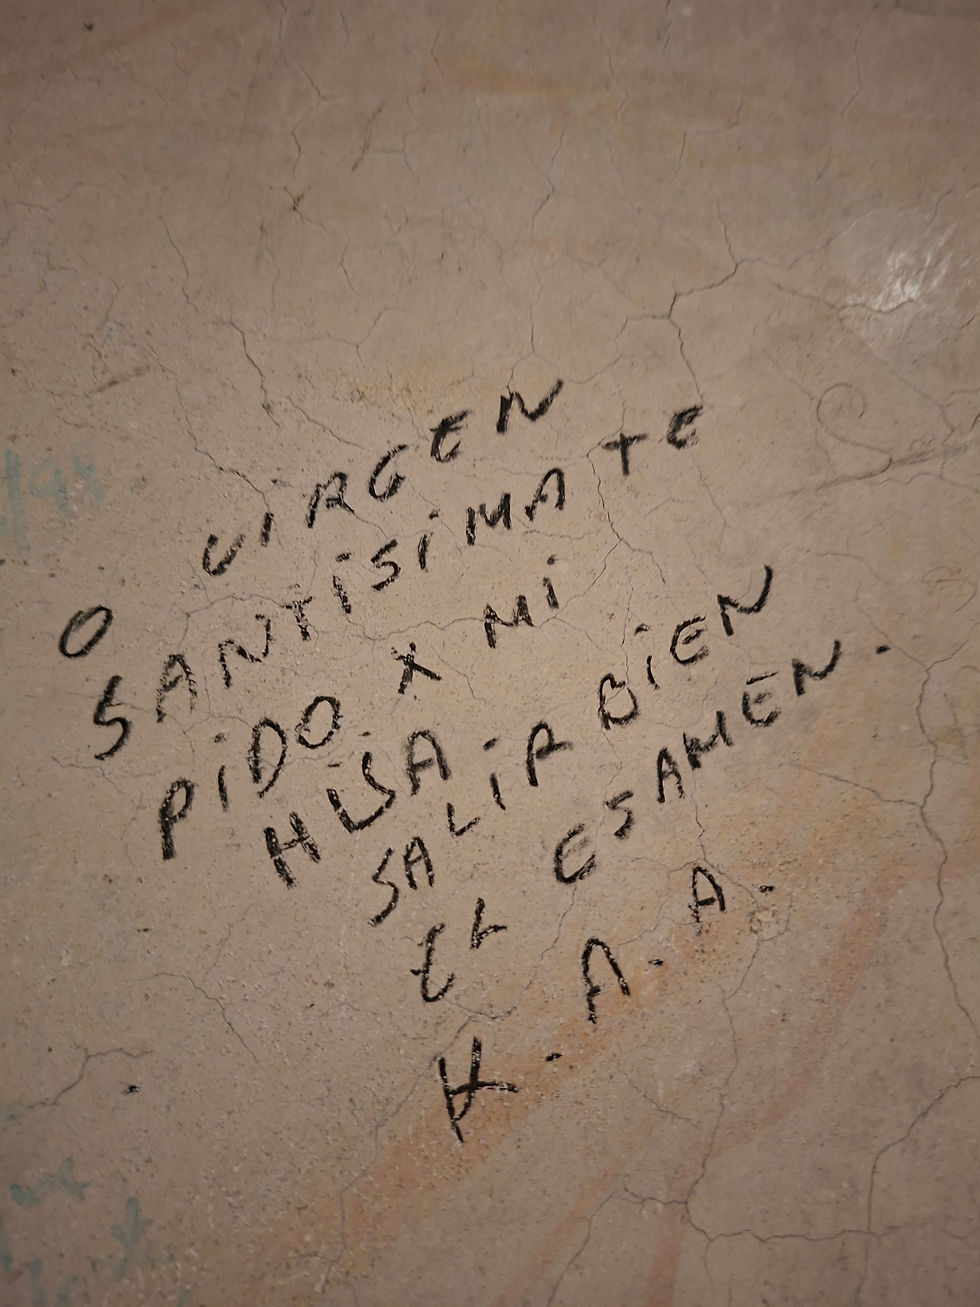 O VIRGEN
SANTISIMA TE
PIDO X MI
HIJA
SALIR BIEN
EL ESAMEN.
K. A. A.